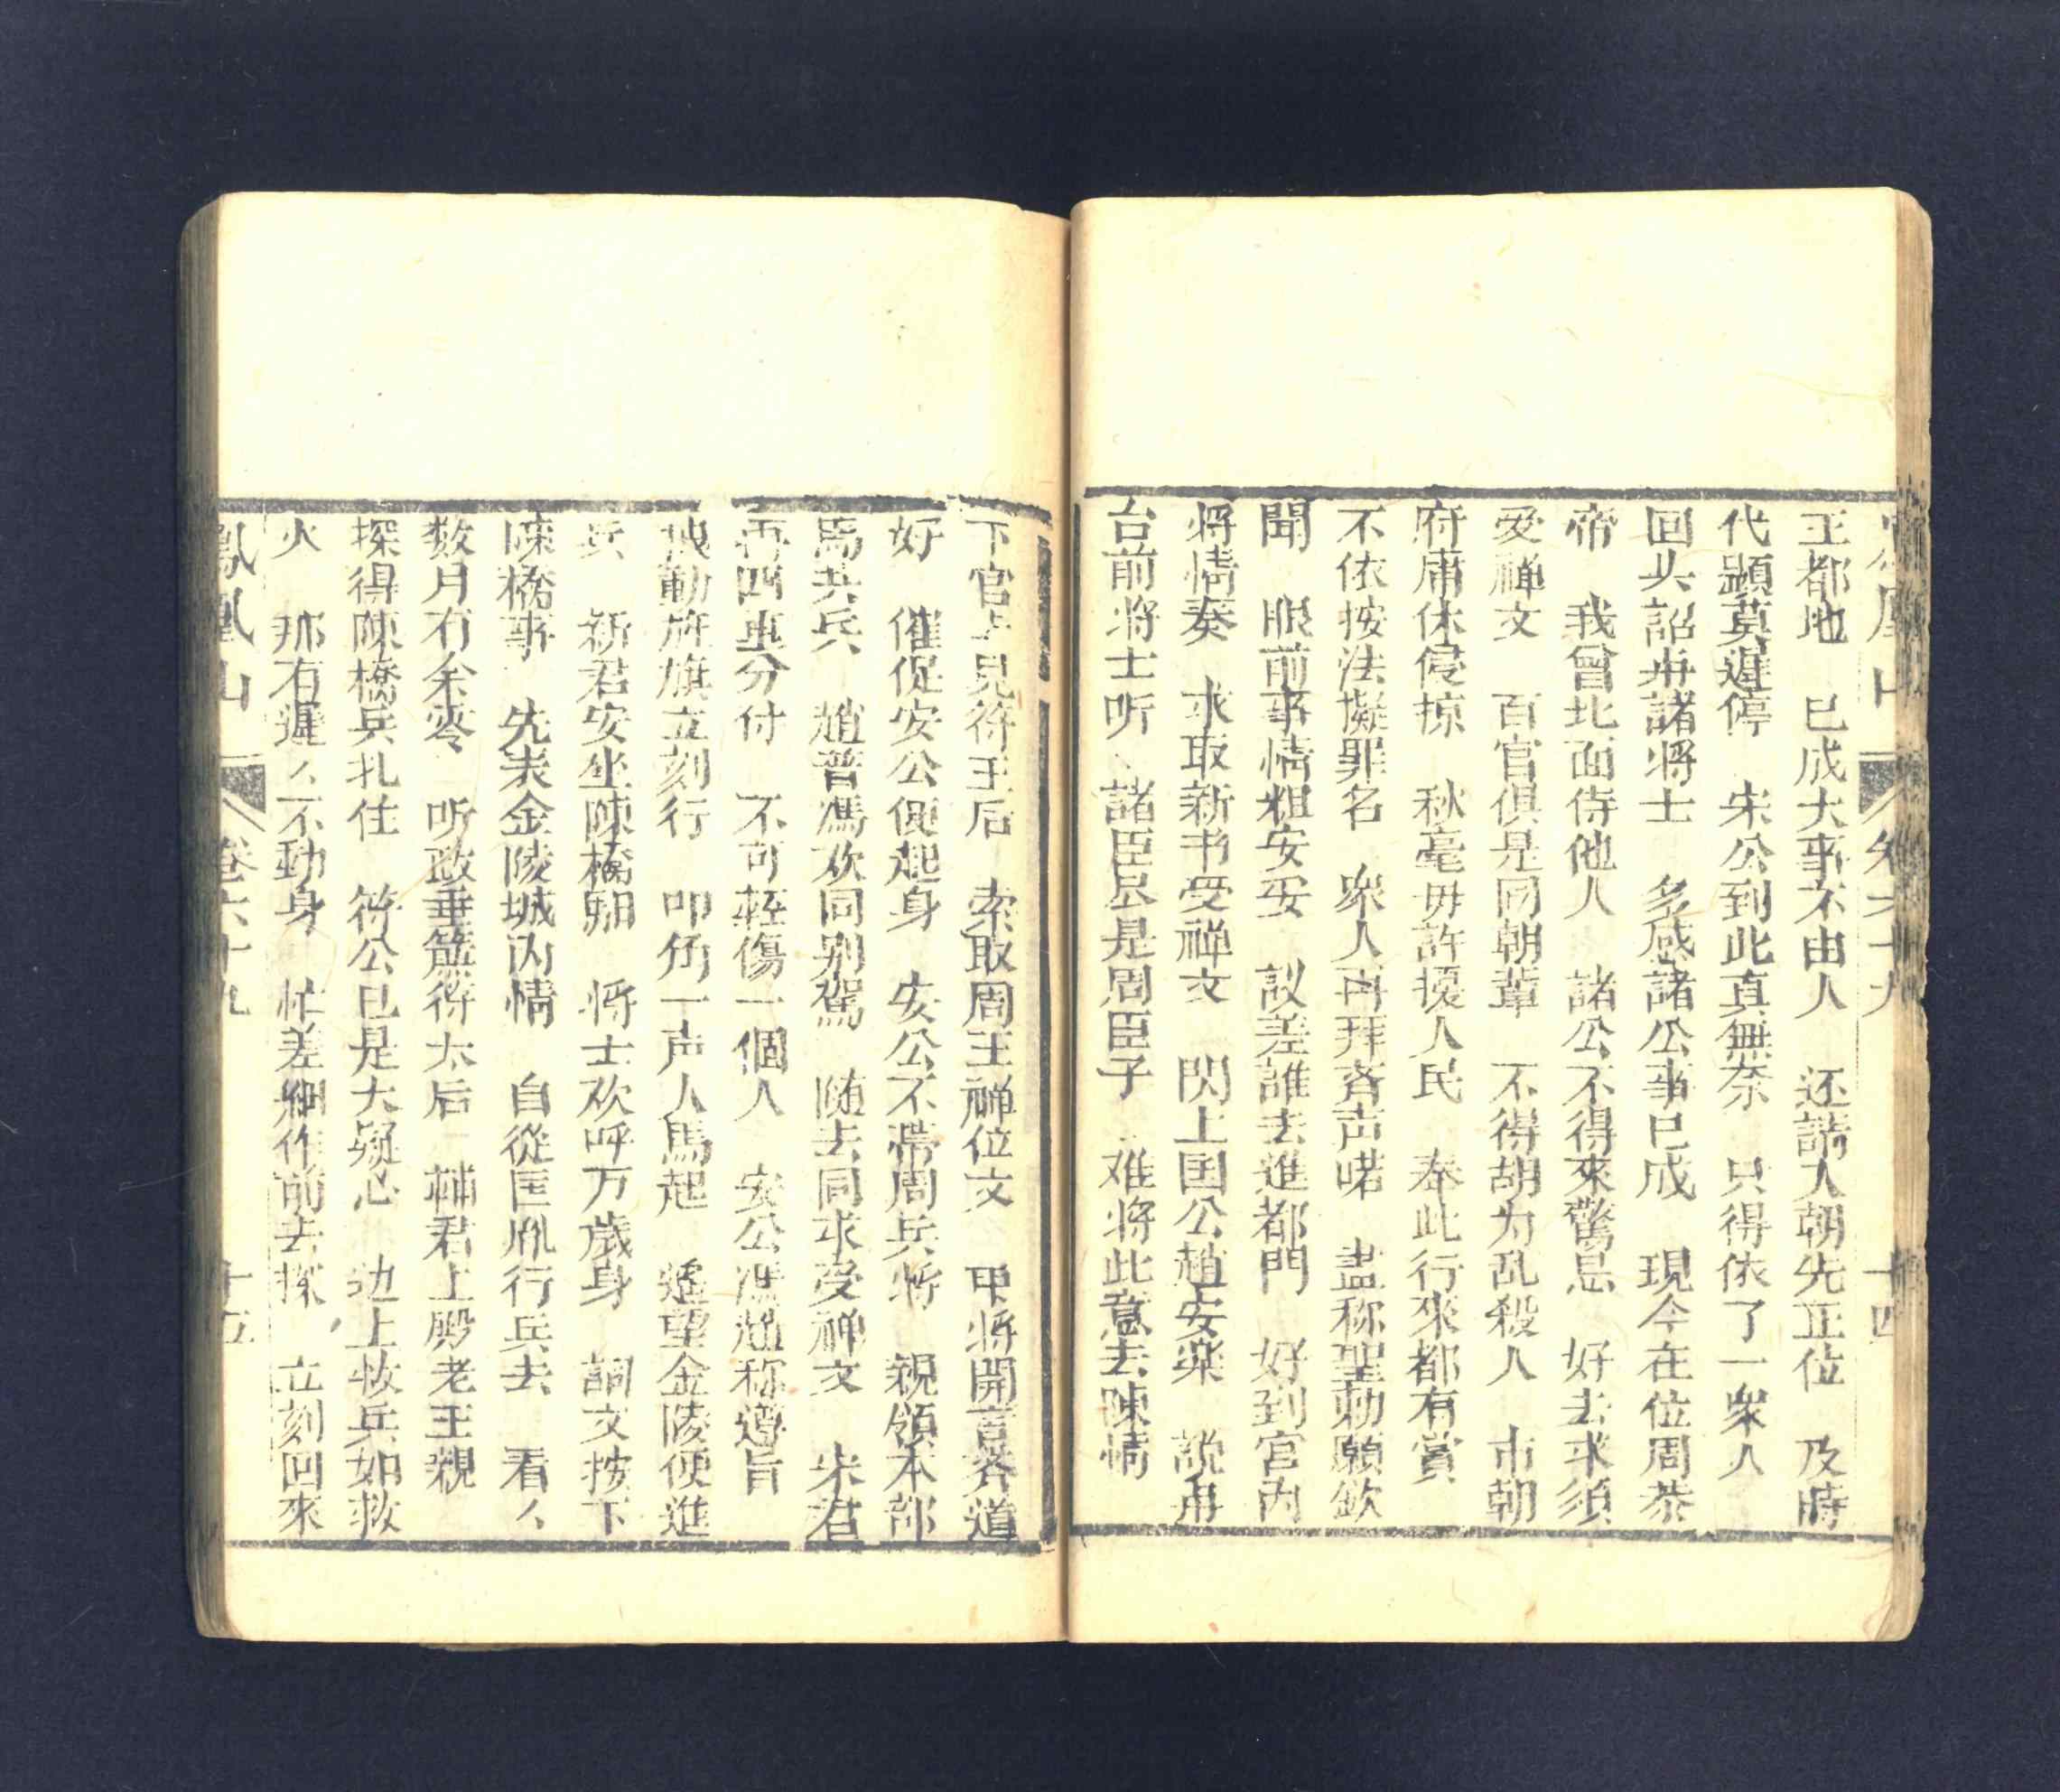 鳳凰山 卷六十九 十四
王都地 已成大事不由人 还請入朝先正位 及時
代顕莫遲停 宋公到此真無奈 只得依了一衆人
回头詔再諸將士 多感諸公事已成 現今在位周恭
帝 我曾北面侍他人 諸公不得來驚忌 好去求須
受禅文 百官俱是同朝輩 不得胡为乱殺人 市朝
府庫休侵掠 秋毫毋許擾人民 奉此行來都有賞
不依按法擬罪名 衆人再拜齐声喏 盡称聖勅願欽
聞 眼前事情粗安妥 議差誰去進都門 好到宮內
將情奏 求取新书受禅文 閃上国公趙安業 說再
台前將士听 諸臣艮是周臣子 难將此意去陳情
下官上見符王后 索取周王禅位文 甲將開言齐道
好 催促安公便起身 安公不帶周兵將 親領本部
馬共兵 趙普馮欢同别駕 随去同求受禅文 宋君
再四重分付 不可輕傷一個人 安公馮趙称遵旨
拽動旌旗立刻行 叩角一声人馬起 遥望金陵便進
兵 新君安坐陳橋馹 將士欢呼万歲身 詞文按下
陳橋事 先表金陵城內情 自從匡胤行兵去 看〻
数月有余零 听政垂簾符太后 輔君上殿老王親
探得陳橋兵扎住 符公已是大疑心 边上收兵如救
火 那有遲〻不動身 忙差細作前去探 立刻回來
鳳凰山 卷六十九 十五